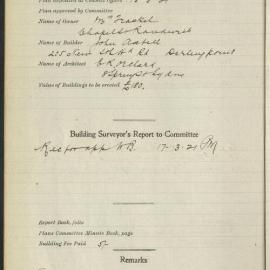 Plan approved by Committee
Name of Owner Mr Frankel
Chapel St Randwick
Name of Builder John
205 New Sth Hd Rd Darling point
Name of Architect E. R.
Spring St Sydney
Value of Buildings to be erected £180.
Building Surveyor's Report to Committee
17-3-21
Report Book, folio
Plans Committee Minute Book, page
Building Fee Paid 5/-
Remarks